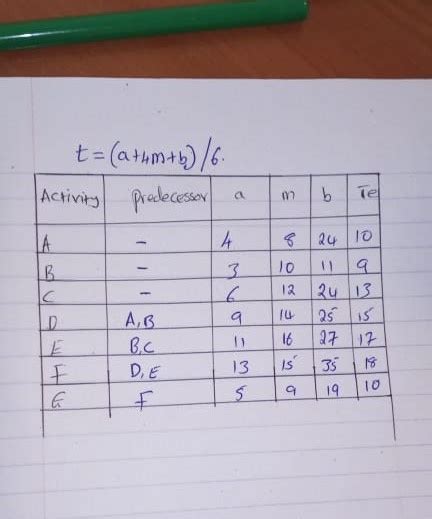 t = (a+4m+b)/6.
Activity predecessor a m b Te
A - 4 8 24 10
B - 3 10 11 9
C - 6 12 24 13
D A,B 9 14 25 15
E B,C 11 16 27 17
F D,E 13 15 35 18
G F 5 9 19 10